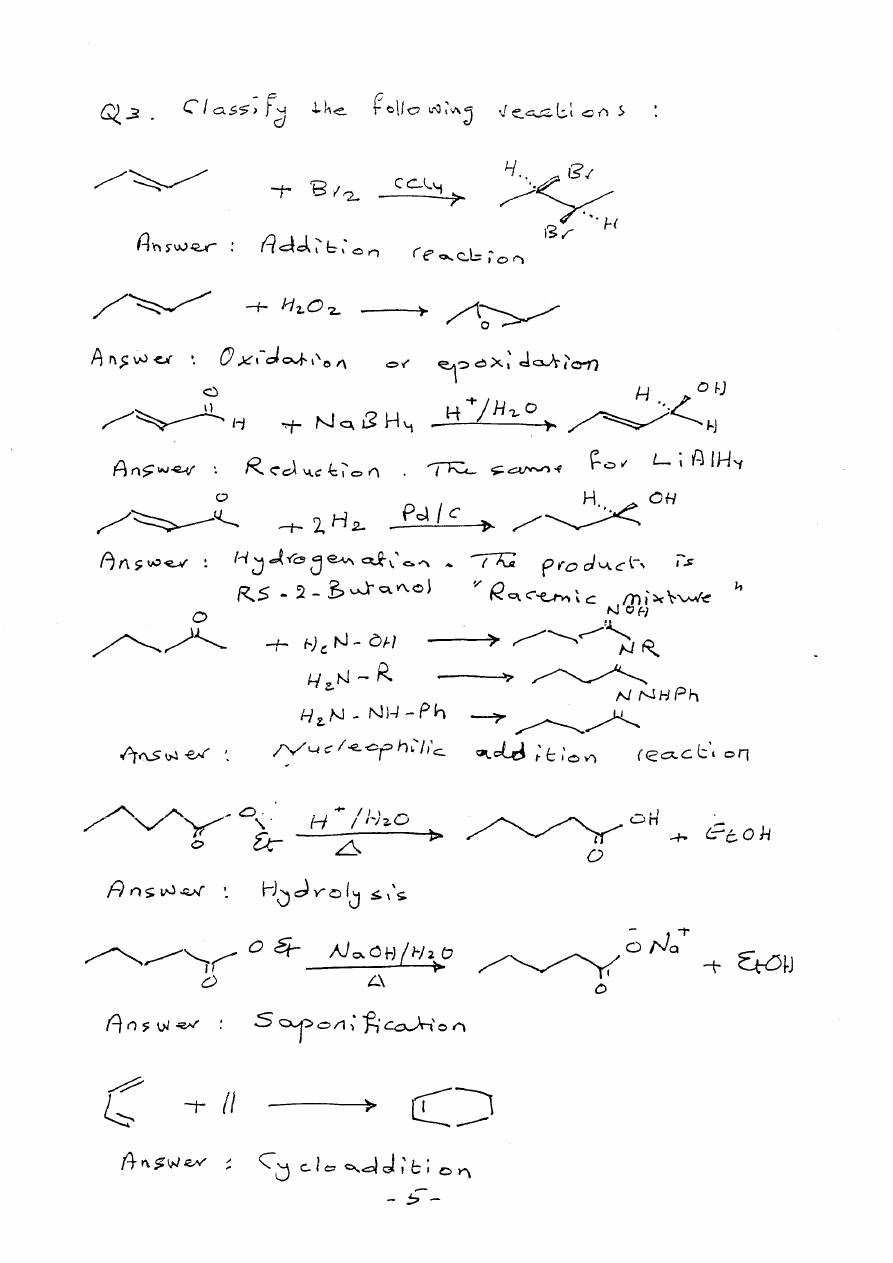 Q3. Classify the following reactions :
+ Br2 CCl4 H Br
Br H
Answer : Addition reaction
+ H2O2 O
Answer : Oxidation or epoxidation
O H + NaBH4 H+/H2O H OH H
Answer : Reduction . The same for LiAlH4
O + 2H2 Pd/C H OH
Answer : Hydrogenation . The product is
RS - 2 - Butanol " Racemic mixture "
NOH
O + H2N-OH
NR
H2N-R
NNHPh
H2N-NH-Ph
Answer : Nucleophilic addition reaction
O O Et H+/H2O Δ OH O + EtOH
Answer : Hydrolysis
O OEt NaOH/H2O Δ O- Na+ O + EtOH
Answer : Saponification
+
Answer : Cycloaddition
- 5 -